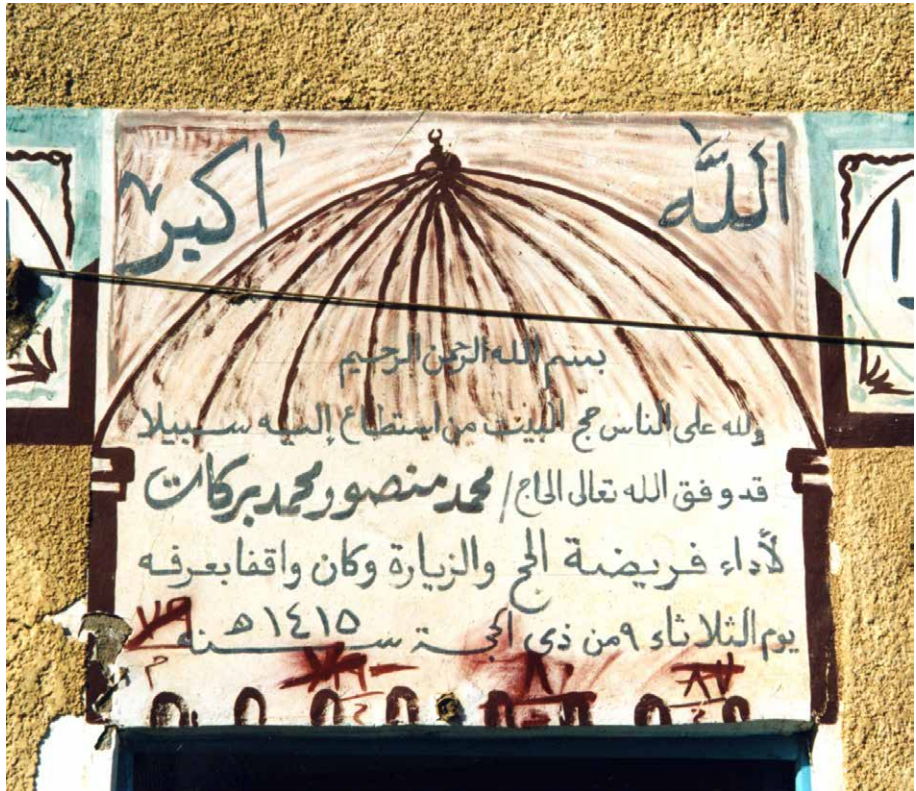 الله أكبر
بسم الله الرحمن الرحيم
ولله على الناس حج البيت من استطاع إليه سبيلا
قد وفق الله تعالى الحاج / محمد منصور محمد بركات
لأداء فريضة الحج والزيارة وكان واقفا بعرفه
يوم الثلاثاء ٩ من ذى الحجة سنه ١٤١٥ هـ